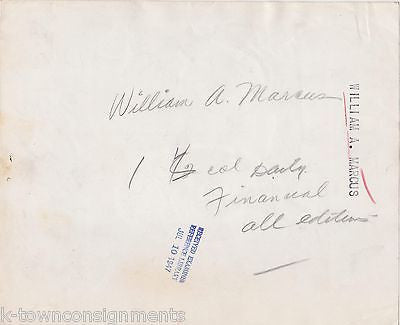 William A. Marcus
WILLIAM A. MARCUS
1 col Daily
Financial
all editions
RECEIVED EXAMINER
REFERENCE LIBRARY
JUL 10 1947
k-townconsignments